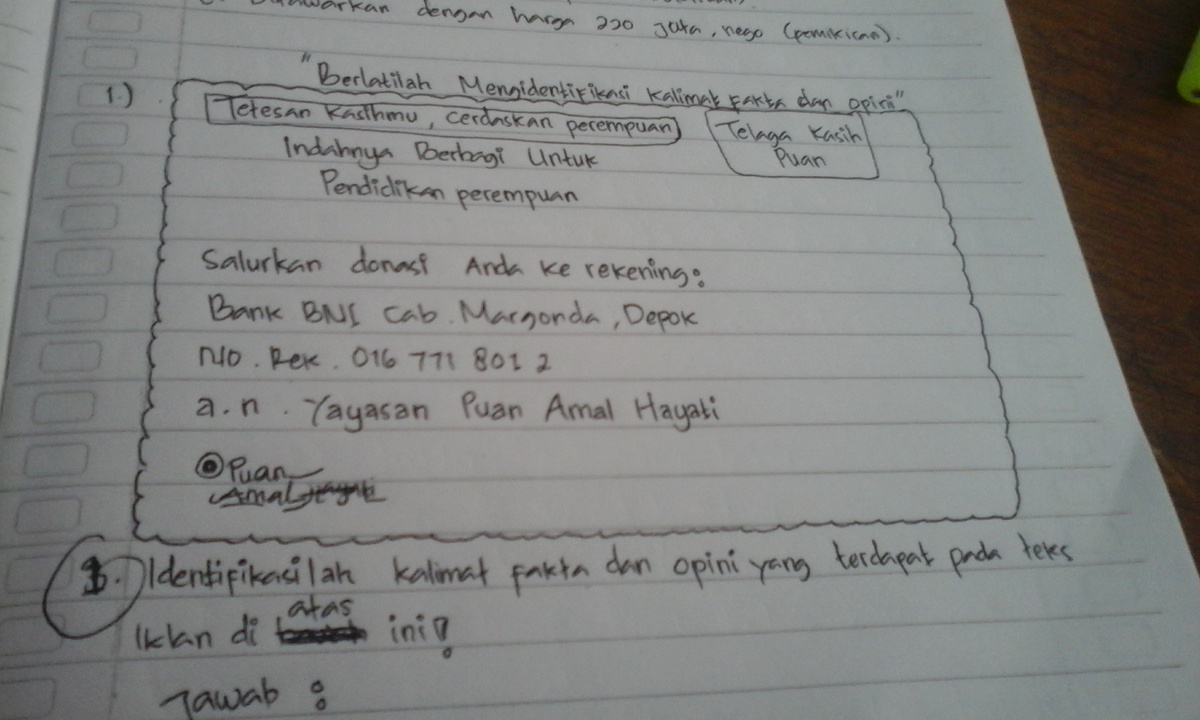 dengan harga 220 juta, nego (pemikiran).
"Berlatilah Mengidentifikasi Kalimat Fakta dan Opini"
1.)
Tetesan Kasihmu, Cerdaskan perempuan
Telaga Kasih
Puan
Indahnya Berbagi Untuk
Pendidikan perempuan
Salurkan donasi Anda ke rekening:
Bank BNI Cab. Margonda, Depok
No. Rek. 016 771 801 2
a.n. Yayasan Puan Amal Hayati
Puan
Amal
1. Identifikasilah kalimat fakta dan opini yang terdapat pada teks
Iklan di atas ini!
Jawab :